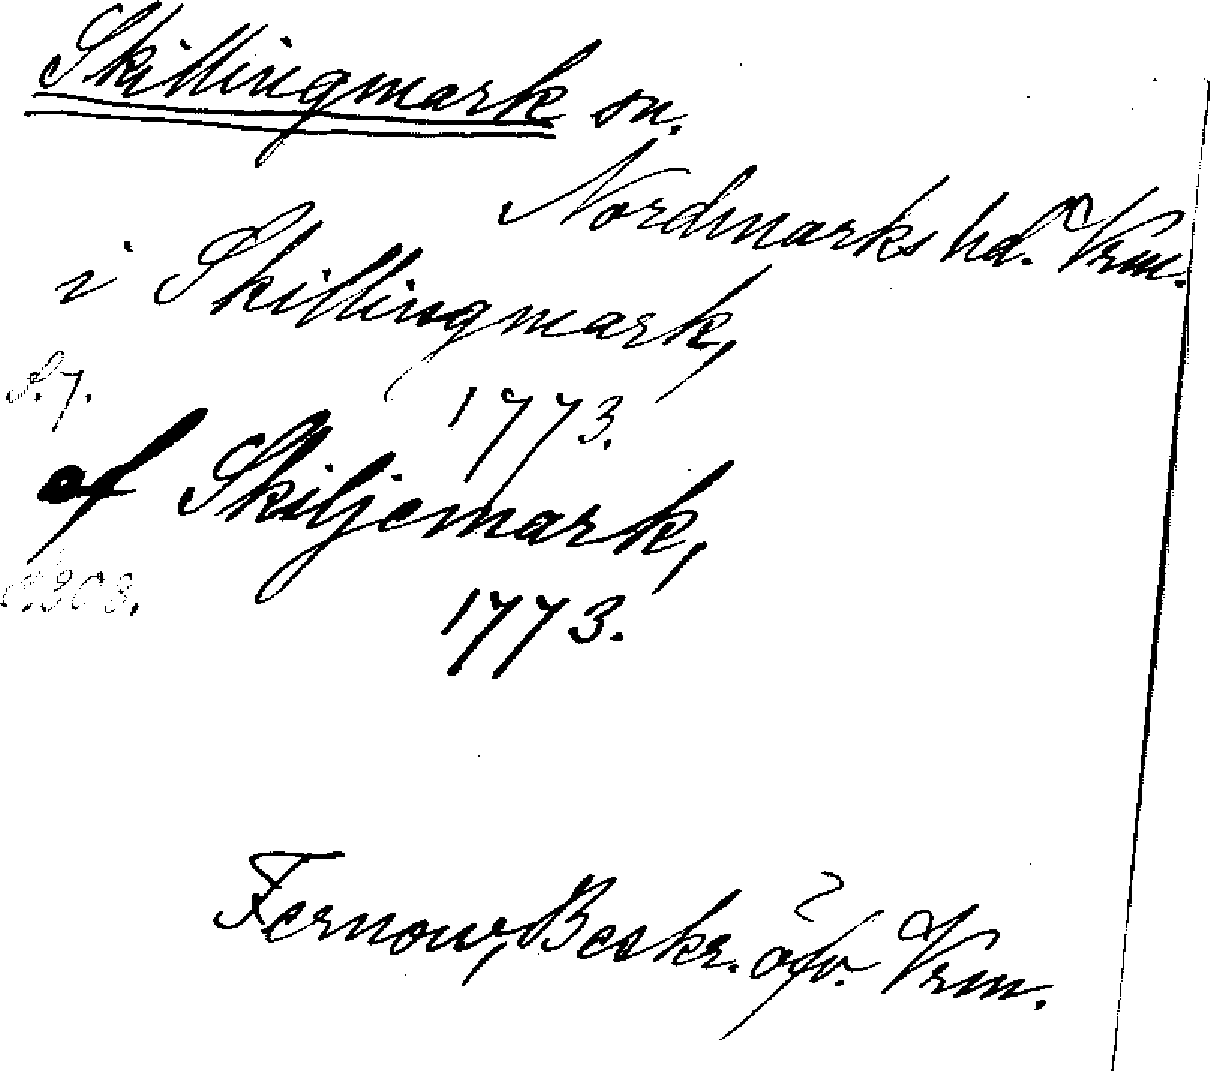 Skillingmark sn.
Nordmarks hd. Vrm.
i Skillingmark,
s. 7. 1773.
af Skiljemark,
s. 308. 1773.
Fernow, Beskr. öfv. Vrm.